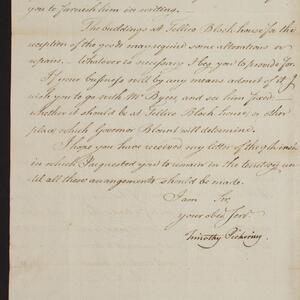 you to furnish him in writing.
The buildings at Tellico Block house for the
reception of the goods may require some alterations or
repairs. Whatever is necessary I beg you to provide for.
If your business will by any means admit of it I
wish you to go with Mr. Byers, and see him fixed
whether it should be at Tellico Block house, or other
place, which Governor Blount will determine.
I hope you have received my letter of the inst.
in which I requested you to remain in the territory, un-
til all these arrangements should be made.
I am Sir,
your obed. serv.
Timothy Pickering